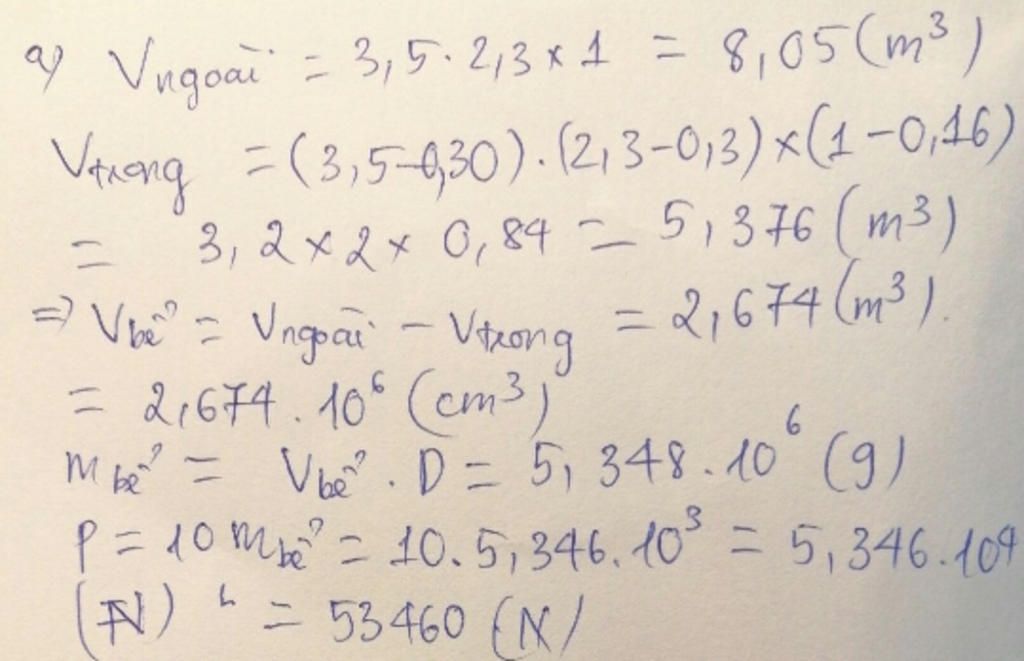 a) Vngoài = 3,5 . 2,3 x 1 = 8,05 (m³)
Vtrong = (3,5-0,30) . (2,3-0,3) x (1-0,16)
= 3,2 x 2 x 0,84 = 5,376 (m³)
=> Vbể = Vngoài - Vtrong = 2,674 (m³).
= 2,674 . 10⁶ (cm³)
mbể = Vbể . D = 5,348 . 10⁶ (g)
P = 10 mbể = 10 . 5,346 . 10³ = 5,346 . 10⁴
(N) = 53460 (N)